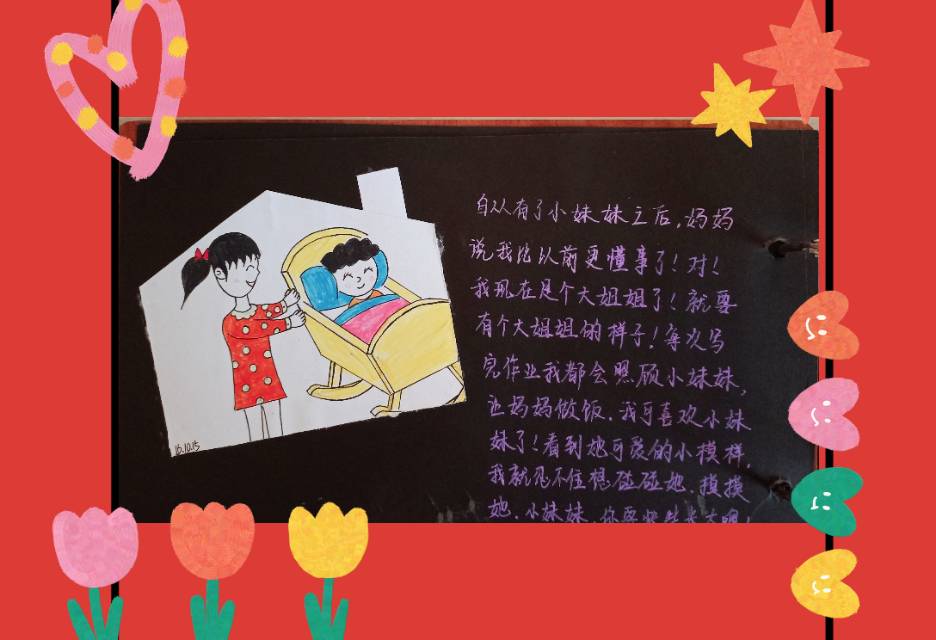 自从有了小妹妹之后，妈妈
说我比以前更懂事了！对！
我现在是个大姐姐了！就要
有个大姐姐的样子！每次写
完作业我都会照顾小妹妹，
让妈妈做饭．我可喜欢小妹
妹了！看到她可爱的小模样，
我就忍不住想碰碰她．摸摸
她．小妹妹，你要快快长大哦！
16.10.15